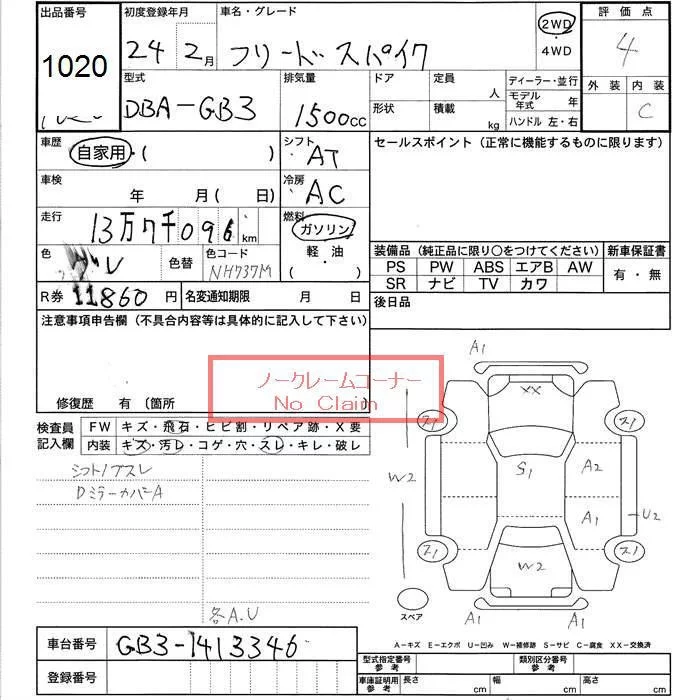 出品番号 初度登録年月 車名・グレード 2WD 評価点
1020 24 2月 フリードスパイク ・4WD 4
型式 排気量 ドア 定員 人 ディーラー・並行 外装 内装
DBA-GB3 1500cc 形状 積載 kg モデル年式 年 C
ハンドル 左・右
車歴 自家用・( ) シフト AT セールスポイント (正常に機能するものに限ります)
車検 年 月( 日) 冷房 AC
走行 13万7千096km 燃料 ガソリン
色 グレ 色替 色コード NH737M 軽・油 ( )
装備品 (純正品に限り○をつけてください) 新車保証書
PS PW ABS エアB AW 有・無
SR ナビ TV カワ
R券 11860円 名変通知期限 月 日 後日品
注意事項申告欄 (不具合内容等は具体的に記入して下さい)
ノークレームコーナー
No Claim
修復歴 有 〔箇所
検査員記入欄 FW キズ・飛石・ヒビ割・リペア跡・X要
内装 キズ・汚レ・コゲ・穴・スレ・キレ・破レ
シフトノブスレ
DミラーカバーA
各A.U
A1
XX
ス1 ス1
W2 S1 A2
A1 U2
ス1 W2 ス1
スペア A1 A1
A-キズ E-エクボ U-凹み W-補修跡 S-サビ C-腐食 XX-交換済
車台番号 GB3-1413346
登録番号
型式指定番号 参考 類別区分番号 参考
車庫証明用 参考 長さ cm 幅 cm 高さ cm